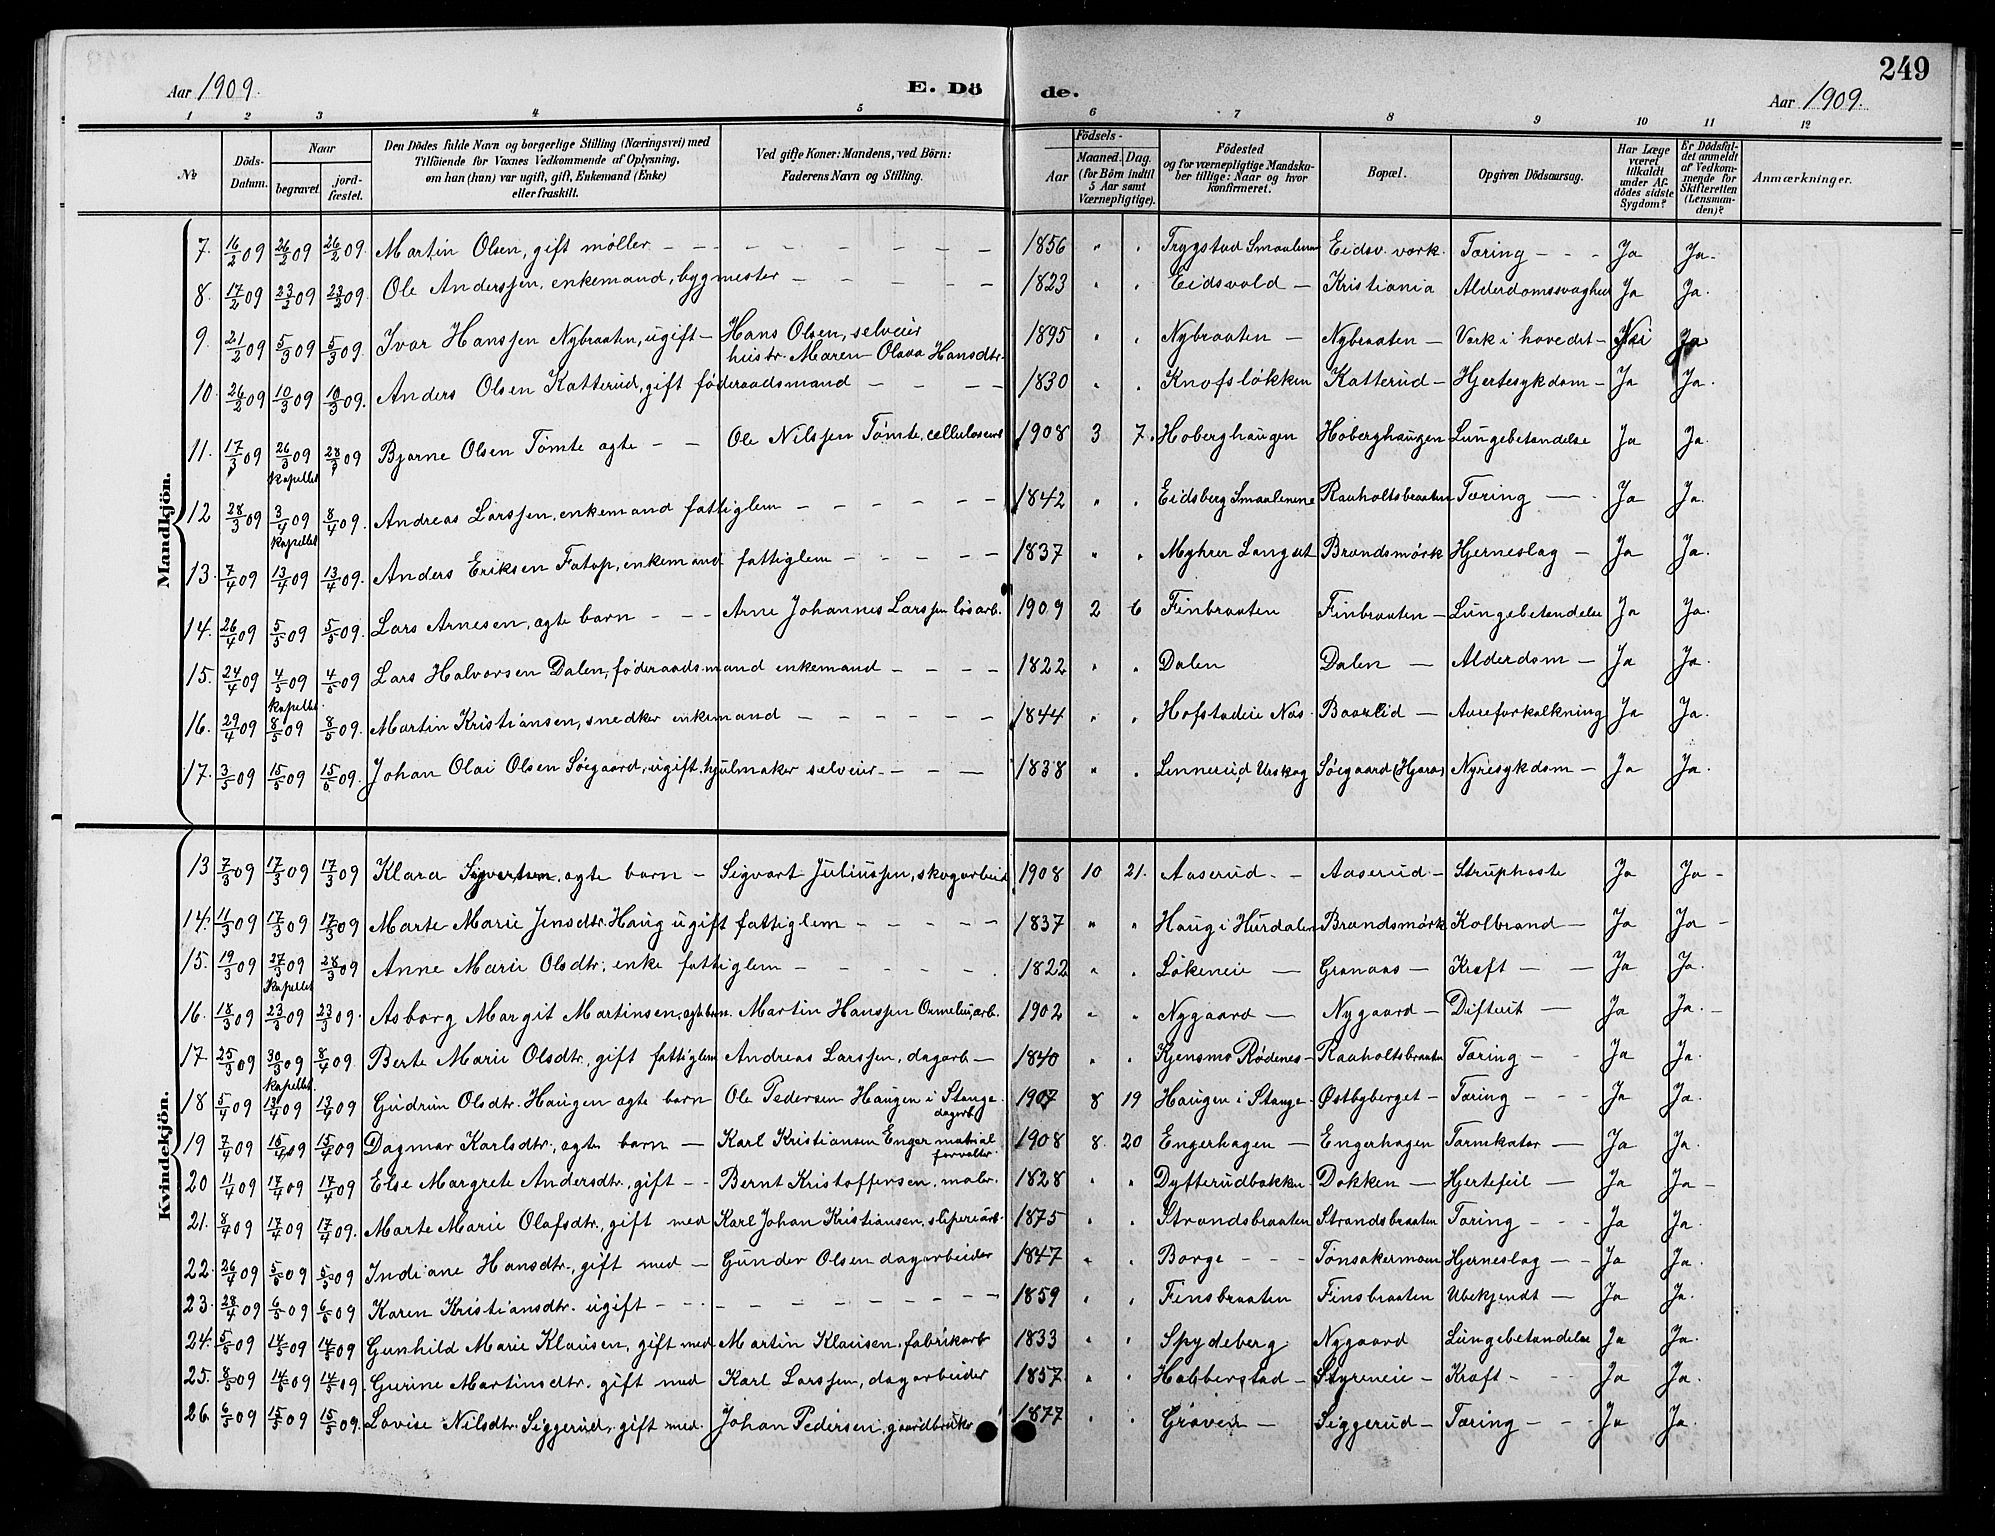 249
Aar 1909. E. Dö de. Aar 1909.
1 2 3 4 5 6 7 8 9 10 11 12
№ Döds-Datum. Naar begravet. jord-fæstet. Den Dödes fulde Navn og borgerlige Stilling (Næringsvei) med Tilföiende for Voxnes Vedkommende af Oplysning, om han (hun) var ugift, gift, Enkemand (Enke) eller fraskilt. Ved gifte Koner: Mandens, ved Börn: Faderens Navn og Stilling. Födsels- Aar Maaned. Dag. (for Börn indtil 5 Aar samt Værnepligtige). Födested og for værnepligtige Mandskaber tillige: Naar og hvor konfirmeret. Bopæl. Opgiven Dödsaarsag. Har Læge været tilkaldt under Afdödes sidste Sygdom? Er Dödsfaldet anmeldt af Vedkommende for Skifteretten (Lensmanden)? Anmærkninger.
Mandkjön.
7. 16/2 09 26/2 09 26/2 09. Martin Olsen, gift møller - - - 1856 " " Trygstad Smaalenene Eidsv. verk. Tæring - - - Ja Ja -
8. 17/2 09 23/2 09 23/2 09. Ole Anderssen, enkemand, bygmester - - - 1823 " " Eidsvold - Kristiania Alderdomssvaghed Ja Ja.
9. 21/2 09 5/3 09 5/3 09. Ivar Hanssen Nybraaten, ugift - Hans Olsen, selveier hustr. Maren Olava Hansdtr. 1895 " " Nybraaten - Nybraaten - Verk i hovedet - Nei Ja
10. 26/2 09 10/3 09 10/3 09. Anders Olsen Katterud, gift føderaadsmand - - - 1830 " " Knofsløkken Katterud - Hjertesykdom - Ja Ja.
11. 17/3 09 26/3 09 kapellet 28/3 09 Bjarne Olsen Tømte ægte - - Ole Nilssen Tømte, 1908 3 7. Hoberghaugen Hoberghaugen Lungebetændelse Ja Ja.
12 28/3 09 3/4 09 kapellet 8/4 09. Andreas Larssen, enkemand fattiglem - - - 1842 " " Eidsberg Smaalenene Raaholtsbraaten Tæring - Ja Ja.
13. 7/4 09 13/4 09 13/4 09. Anders Eriksen Fatop, enkemand fattiglem - - - 1837 " " Myhrer Langset Brændsmørk Hjerneslag - Ja Ja.
14. 26/4 09 5/5 09 5/5 09. Lars Arnesen, ægte barn - - - Arne Johannes Larssen løsarb. 1909 2 6 Finbraaten Finbraaten - Lungebetændelse Ja Ja.
15. 24/4 09 4/5 09 4/5 09 Lars Halvorsen Dalen, føderaadsmand enkemand - - - 1822 " " Dalen Dalen - Alderdom - Ja Ja.
16. 29/4 09 kapellet. 8/5 09 8/5 09. Martin Kristiansen, snedker enkemand - - - 1844 " " Hofstadeie Næs. Baarlid - Aareforkalkning Ja Ja.
17. 3/5 09 15/5 09 15/5 09. Johan Olai Olsen Søegaard, ugift, hjulmaker selveier - - - 1838 " " Lennerud Urskog Søegaard (Hjera) Nyresykdom - Ja Ja.
Kvindekjön.
13 7/3 09 17/3 09 17/3 09 Klara Sigvartsen, ægte barn - Sigvart Juliussen, skogarbeid. 1908 10 21. Aaserud - - Aaserud - Struphoste Ja Ja -
14. 11/3 09 17/3 09 17/3 09 Marte Marie Jensdtr. Haug ugift fattiglem - - - 1837 " " Haug i Hurdalen Brændsmørk Kolbrand - Ja Ja -
15. 19/3 09 27/3 09 kapellet 28/3 09 Anne Marie Olsdtr. enke fattiglem - - - 1822 " " Løkeneie - Granaas - Kræft - - Ja Ja.
16. 18/3 09 23/3 09 23/3 09. Asborg Margit Martinsen, ægte barn. Martin Hanssen Ormelieiarb. 1902 " " Nygaard - Nygaard - Difterit - Ja Ja. -
17 25/3 09 30/3 09 kapellet. 8/4 09 Berte Marie Olsdtr, gift fattiglem Andreas Larssen, dagarb - 1840 " " Kjensmo Rødenes - Raaholtsbraaten Tæring - - Ja Ja.
18 5/4 09 13/4 09 13/4 09 Gudrun Olsdtr. Haugen ægte barn Ole Pedersen Haugen i Stange. dagarb. 1907 8 19 Haugen i Stange - Østbyberget - Tæring - - - Ja Ja.
19 7/4 09 15/4 09 15/4 09 Dagmar Karlsdtr, ægte barn - Karl Kristiansen Enger matrial forvaltr. 1908 8. 20 Engerhagen - Engerhagen Tarmkatar - Ja Ja.
20 11/4 09 17/4 09 17/4 09 Else Margrete Andersdtr., gift - - Bernt Kristoffersen, maler. 1828 " " Dyfterudbakken - Dokken - Hjertefeil - Ja Ja -
21. 8/4 09 17/4 09 17/4 09. Marte Marie Olafsdtr., gift med Karl Johan Kristiansen, sliperiarb. 1875 " " Strandsbraaten Strandsbraaten Tæring - - - Ja Ja.
22. 26/4 09 5/5 09 5/5 09 Indiane Hansdtr., gift med - Gunder Olsen dagarbeider 1847 " " Borge - - - Tønsakermoen Hjerneslag - - Ja Ja.
23. 28/4 09 6/5 09 6/5 09 Karen Kristiansdtr. ugift - - - 1859 " " Finsbraaten Finsbraaten Ubekjendt - Ja Ja.
24. 5/5 09 14/5 09 14/5 09 Gunhild Marie Klausen, gift med Martin Klausen, fabrikarb 1833 " " Spydeberg Nygaard Lungebetændelse Ja Ja.
25. 8/5 09 14/5 09 14/5 09. Gurine Martinsdtr. gift med Karl Larssen, dagarbeider 1857 " " Habberstad - Styreneie - Kræft - - Ja Ja.
26. 6/5 09 15/5 09 15/5 09. Lovise Nilsdtr. Siggerud, gift med. Johan Pedersen, gaardbruker 1877 " " - Siggerud - Tæring - - - Ja Ja.